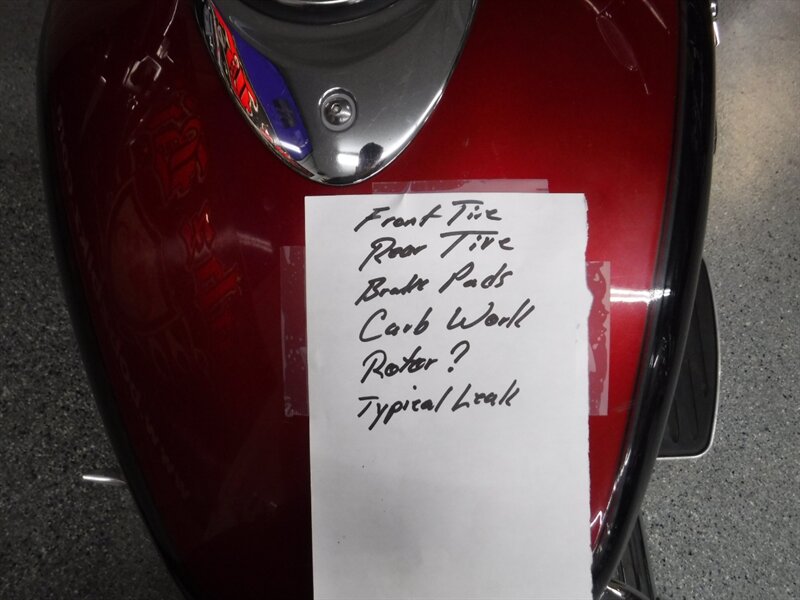 Front Tire
Rear Tire
Brake Pads
Carb Work
Rotor?
Typical Leak